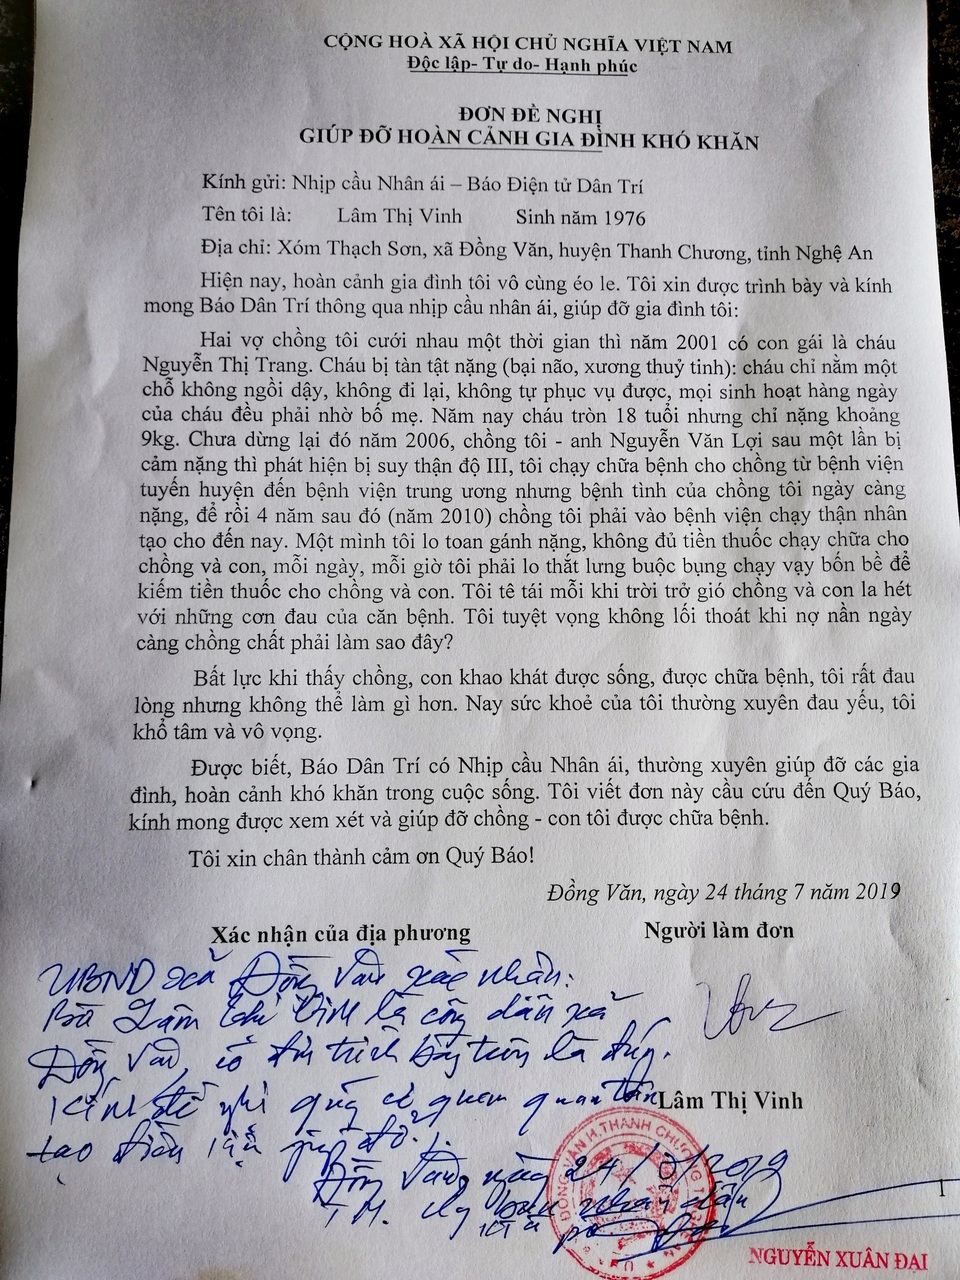 CỘNG HOÀ XÃ HỘI CHỦ NGHĨA VIỆT NAM
Độc lập- Tự do- Hạnh phúc
ĐƠN ĐỀ NGHỊ
GIÚP ĐỠ HOÀN CẢNH GIA ĐÌNH KHÓ KHĂN
Kính gửi: Nhịp cầu Nhân ái – Báo Điện tử Dân Trí
Tên tôi là: Lâm Thị Vinh Sinh năm 1976
Địa chỉ: Xóm Thạch Sơn, xã Đồng Văn, huyện Thanh Chương, tỉnh Nghệ An
Hiện nay, hoàn cảnh gia đình tôi vô cùng éo le. Tôi xin được trình bày và kính
mong Báo Dân Trí thông qua nhịp cầu nhân ái, giúp đỡ gia đình tôi:
Hai vợ chồng tôi cưới nhau một thời gian thì năm 2001 có con gái là cháu
Nguyễn Thị Trang. Cháu bị tàn tật nặng (bại não, xương thuỷ tinh): cháu chỉ nằm một
chỗ không ngồi dậy, không đi lại, không tự phục vụ được, mọi sinh hoạt hàng ngày
của cháu đều phải nhờ bố mẹ. Năm nay cháu tròn 18 tuổi nhưng chỉ nặng khoảng
9kg. Chưa dừng lại đó năm 2006, chồng tôi - anh Nguyễn Văn Lợi sau một lần bị
cảm nặng thì phát hiện bị suy thận độ III, tôi chạy chữa bệnh cho chồng từ bệnh viện
tuyến huyện đến bệnh viện trung ương nhưng bệnh tình của chồng tôi ngày càng
nặng, để rồi 4 năm sau đó (năm 2010) chồng tôi phải vào bệnh viện chạy thận nhân
tạo cho đến nay. Một mình tôi lo toan gánh nặng, không đủ tiền thuốc chạy chữa cho
chồng và con, mỗi ngày, mỗi giờ tôi phải lo thắt lưng buộc bụng chạy vạy bốn bề để
kiếm tiền thuốc cho chồng và con. Tôi tê tái mỗi khi trời trở gió chồng và con la hét
với những cơn đau của căn bệnh. Tôi tuyệt vọng không lối thoát khi nợ nần ngày
càng chồng chất phải làm sao đây?
Bất lực khi thấy chồng, con khao khát được sống, được chữa bệnh, tôi rất đau
lòng nhưng không thể làm gì hơn. Nay sức khoẻ của tôi thường xuyên đau yếu, tôi
khổ tâm và vô vọng.
Được biết, Báo Dân Trí có Nhịp cầu Nhân ái, thường xuyên giúp đỡ các gia
đình, hoàn cảnh khó khăn trong cuộc sống. Tôi viết đơn này cầu cứu đến Quý Báo,
kính mong được xem xét và giúp đỡ chồng - con tôi được chữa bệnh.
Tôi xin chân thành cảm ơn Quý Báo!
Đồng Văn, ngày 24 tháng 7 năm 2019
Xác nhận của địa phương Người làm đơn
UBND xã Đồng Văn xác nhận:
Bà Lâm Thị Vinh là công dân xã
Đồng Văn, có đơn trình bày trên là đúng.
Kính đề nghị quý cơ quan quan tâm
tạo điều kiện giúp đỡ.
Lâm Thị Vinh
Đồng Văn, ngày 24/7/2019
TM. Ủy ban nhân dân
ĐỒNG VĂN H.THANH CHƯƠNG
1
NGUYỄN XUÂN ĐẠI